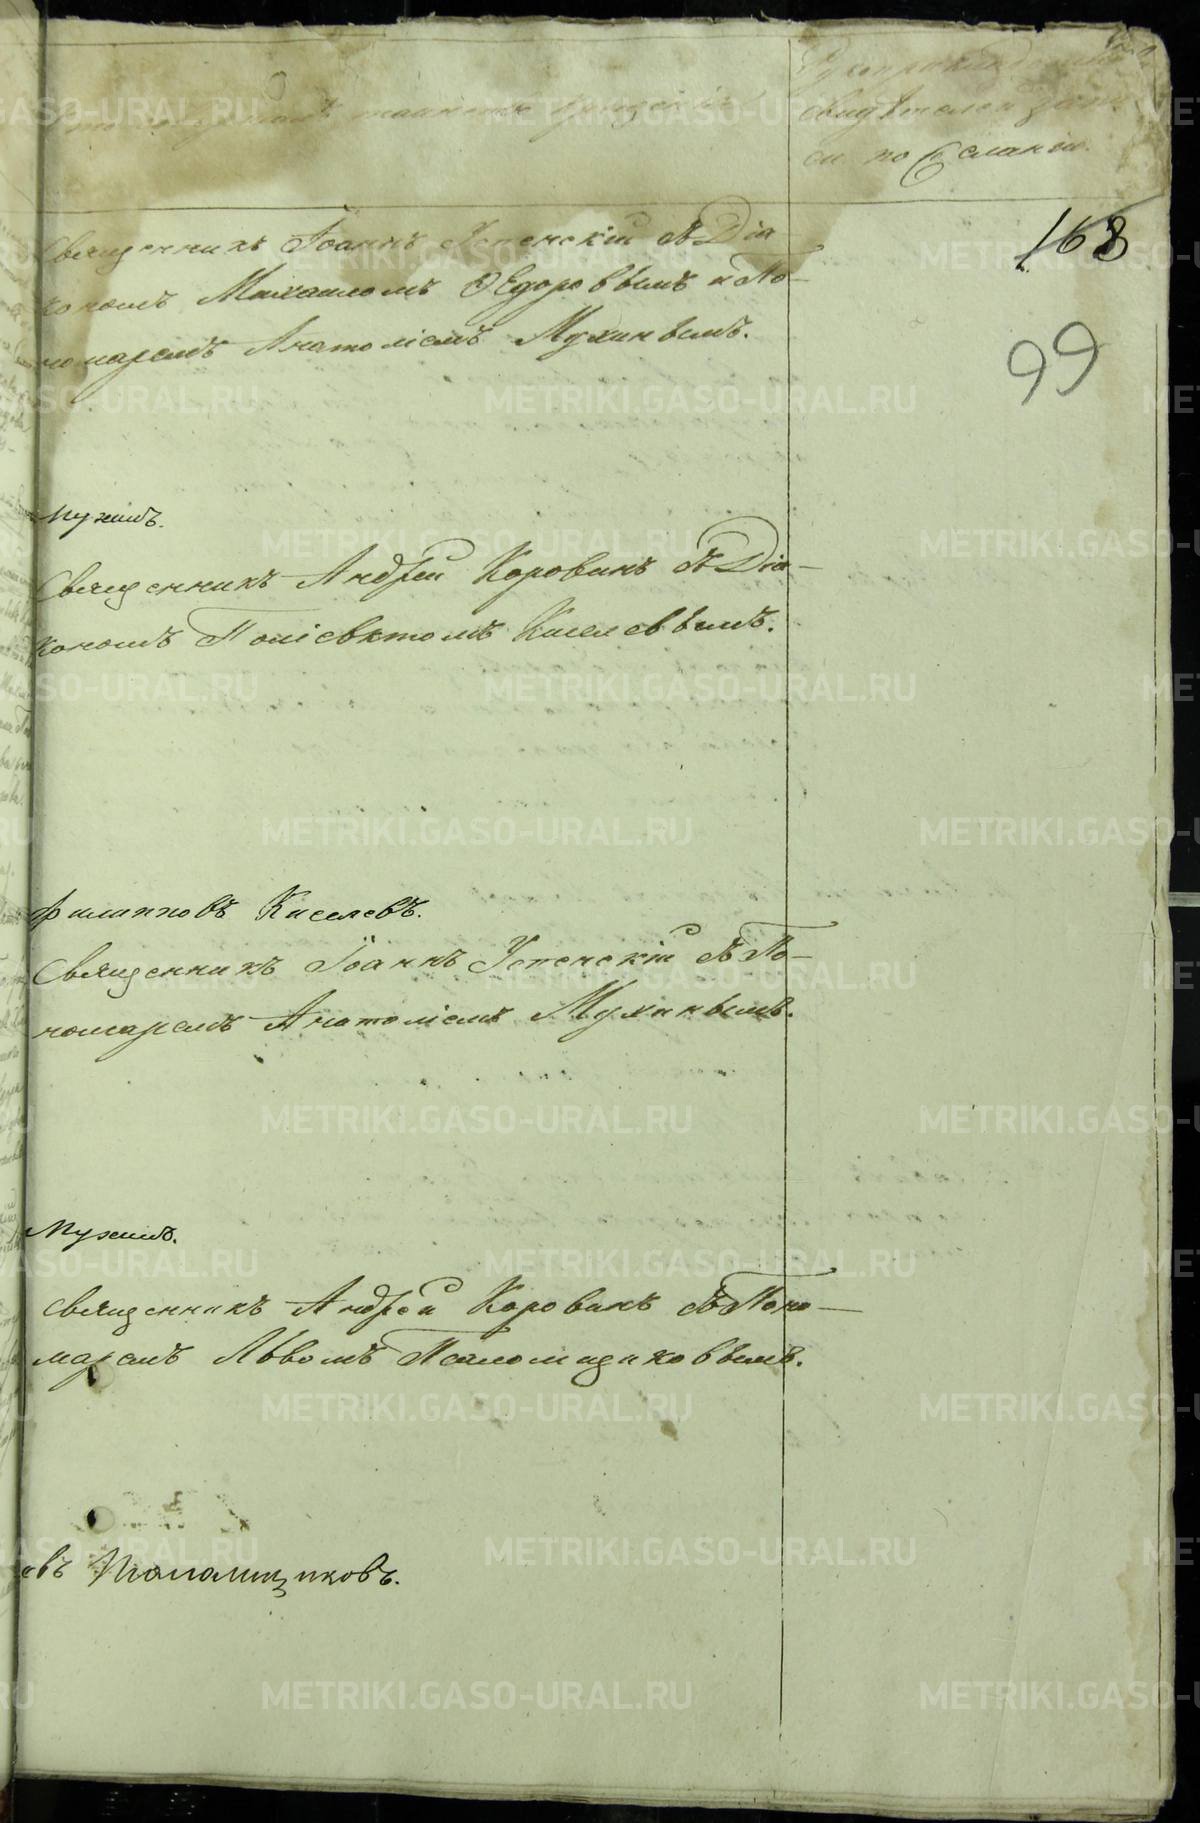 Кто совершалъ таинство крещенія
Рукоприкладство
свидѣтелей запи
си по желанію.
168
99
Священникъ Іоаннъ Успенскій съ Діа
кономъ Михаиломъ Ѳедоровымъ и По-
номаремъ Анатоліемъ Мухинымъ.
Мухинъ.
Священникъ Андрей Коровинъ съ Діа-
кономъ Поліевктомъ Киселевымъ.
Филипповъ Киселевъ.
Священникъ Іоаннъ Успенскій съ По-
номаремъ Анатоліемъ Мухинымъ.
Мухинъ.
Священникъ Андрей Коровинъ съ Поно-
маремъ Львомъ Псаломщиковымъ.
овъ Псаломщиковъ.
METRIKI.GASO-URAL.RU